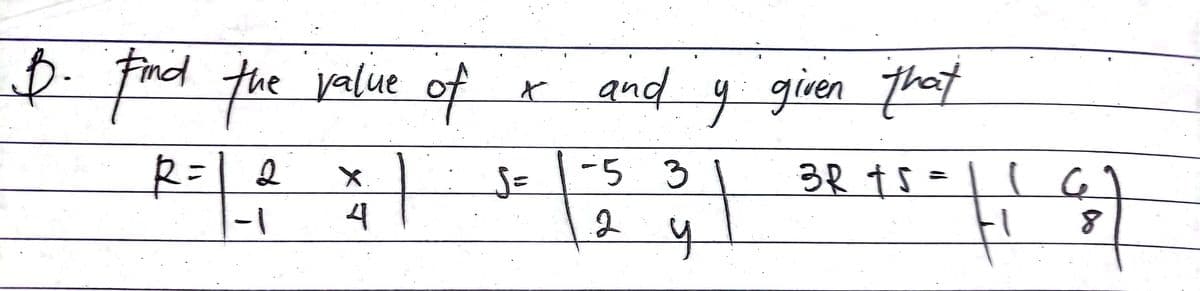 B. Find the value of x and y given that
R = | 2 x | S = | -5 3 | 3R + S = | 1 6 |
| -1 4 | | 2 y | | -1 8 |